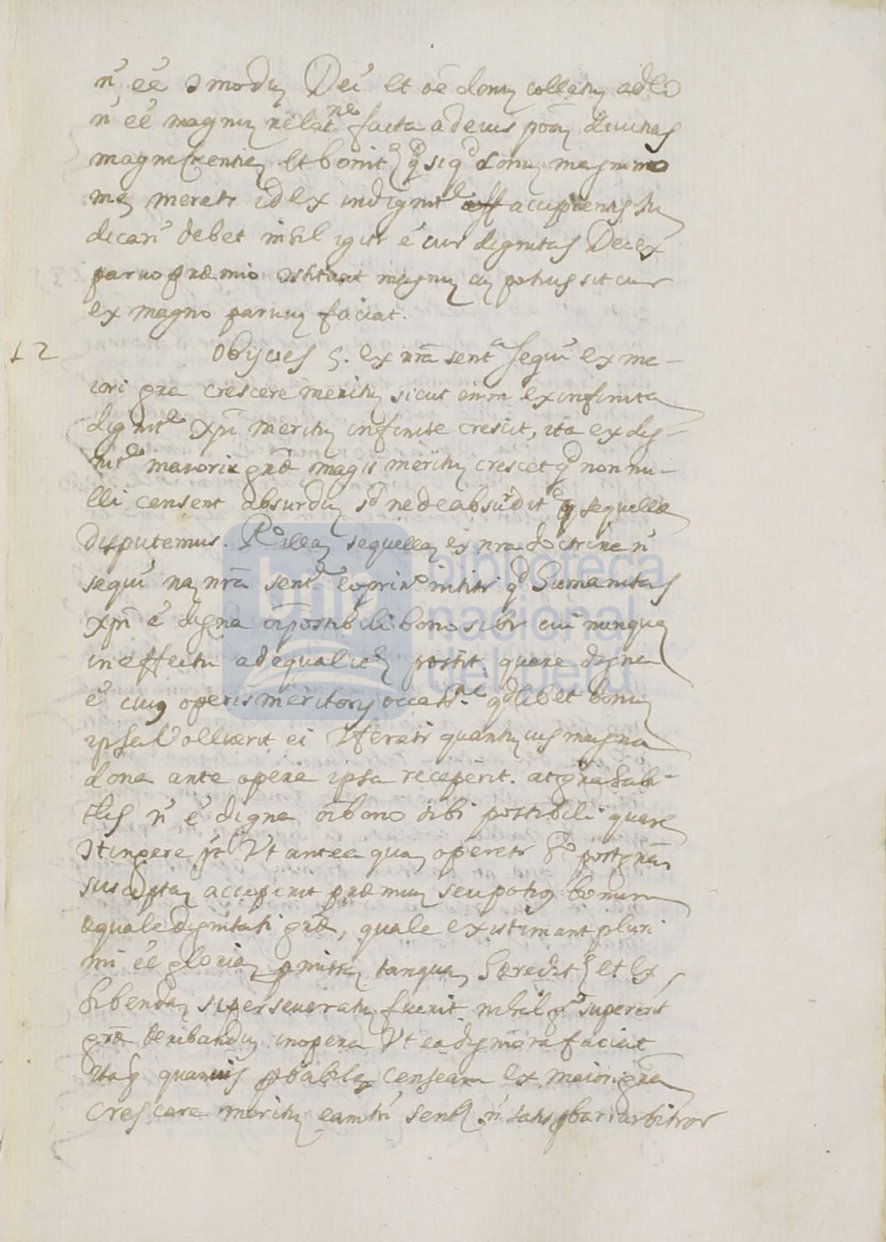 n̄ eē ɔmodũ Dei et oē donũ collatũ ad eo
n̄ eē magnũ relatne facta a deius potẽ divinas
magnificentiẽ et bonit qd siqd donũ magnum
mẽ meretr id ex indignite accipientis Iu
dicari debet nihil igitr ē cur dignitas Dei ex
parvo præmio ɔstituat magnũ cũ potius sit cur
ex magno parvum faciat.
12 Obijcies 5. ex nrã senta sequi ex ma-
iori gra crescere meritũ sicut enim ex infinita
dignite Xpi meritũ infinite crescit, ita ex dig-
nite maioris græ magis meritũ crescet qd nonnu-
lli censent absurdũ sd ne de absurdite sequellæ
disputemus. Ro illã sequellã ex nra doctrina n̄
sequi nã nrã senta eo prino nititr qd humanitas
Xpi ē digna oi possibili bono sibi cui nunquã
in effectu adequali possit quare digna
ē cuius operis meritorij occatne qdlibet bonũ
ipsa Voluerit ei ɔferatr quantũvis magna
dona ante opera ipsa receperit. at gra habi-
tlis n̄ ē digna oi bono sibi possibili quare
ɔtingere pt Vt antea quã operetr post grãm
susceptã acceperit præmiũ seu potius bonum
æquale dignitati græ, quale existimant pluri
mi eē gloriã pmissã tanquã hæredit et ex
hibendã si perseveratũ fuerit nihil supererit
græ derivandũ in opera Vt ea digniora faciat
Itaq quamvis pbabile censeam ex maiori gra
crescere meritũ eam tn̄ sentã n̄ satis pbari arbitror